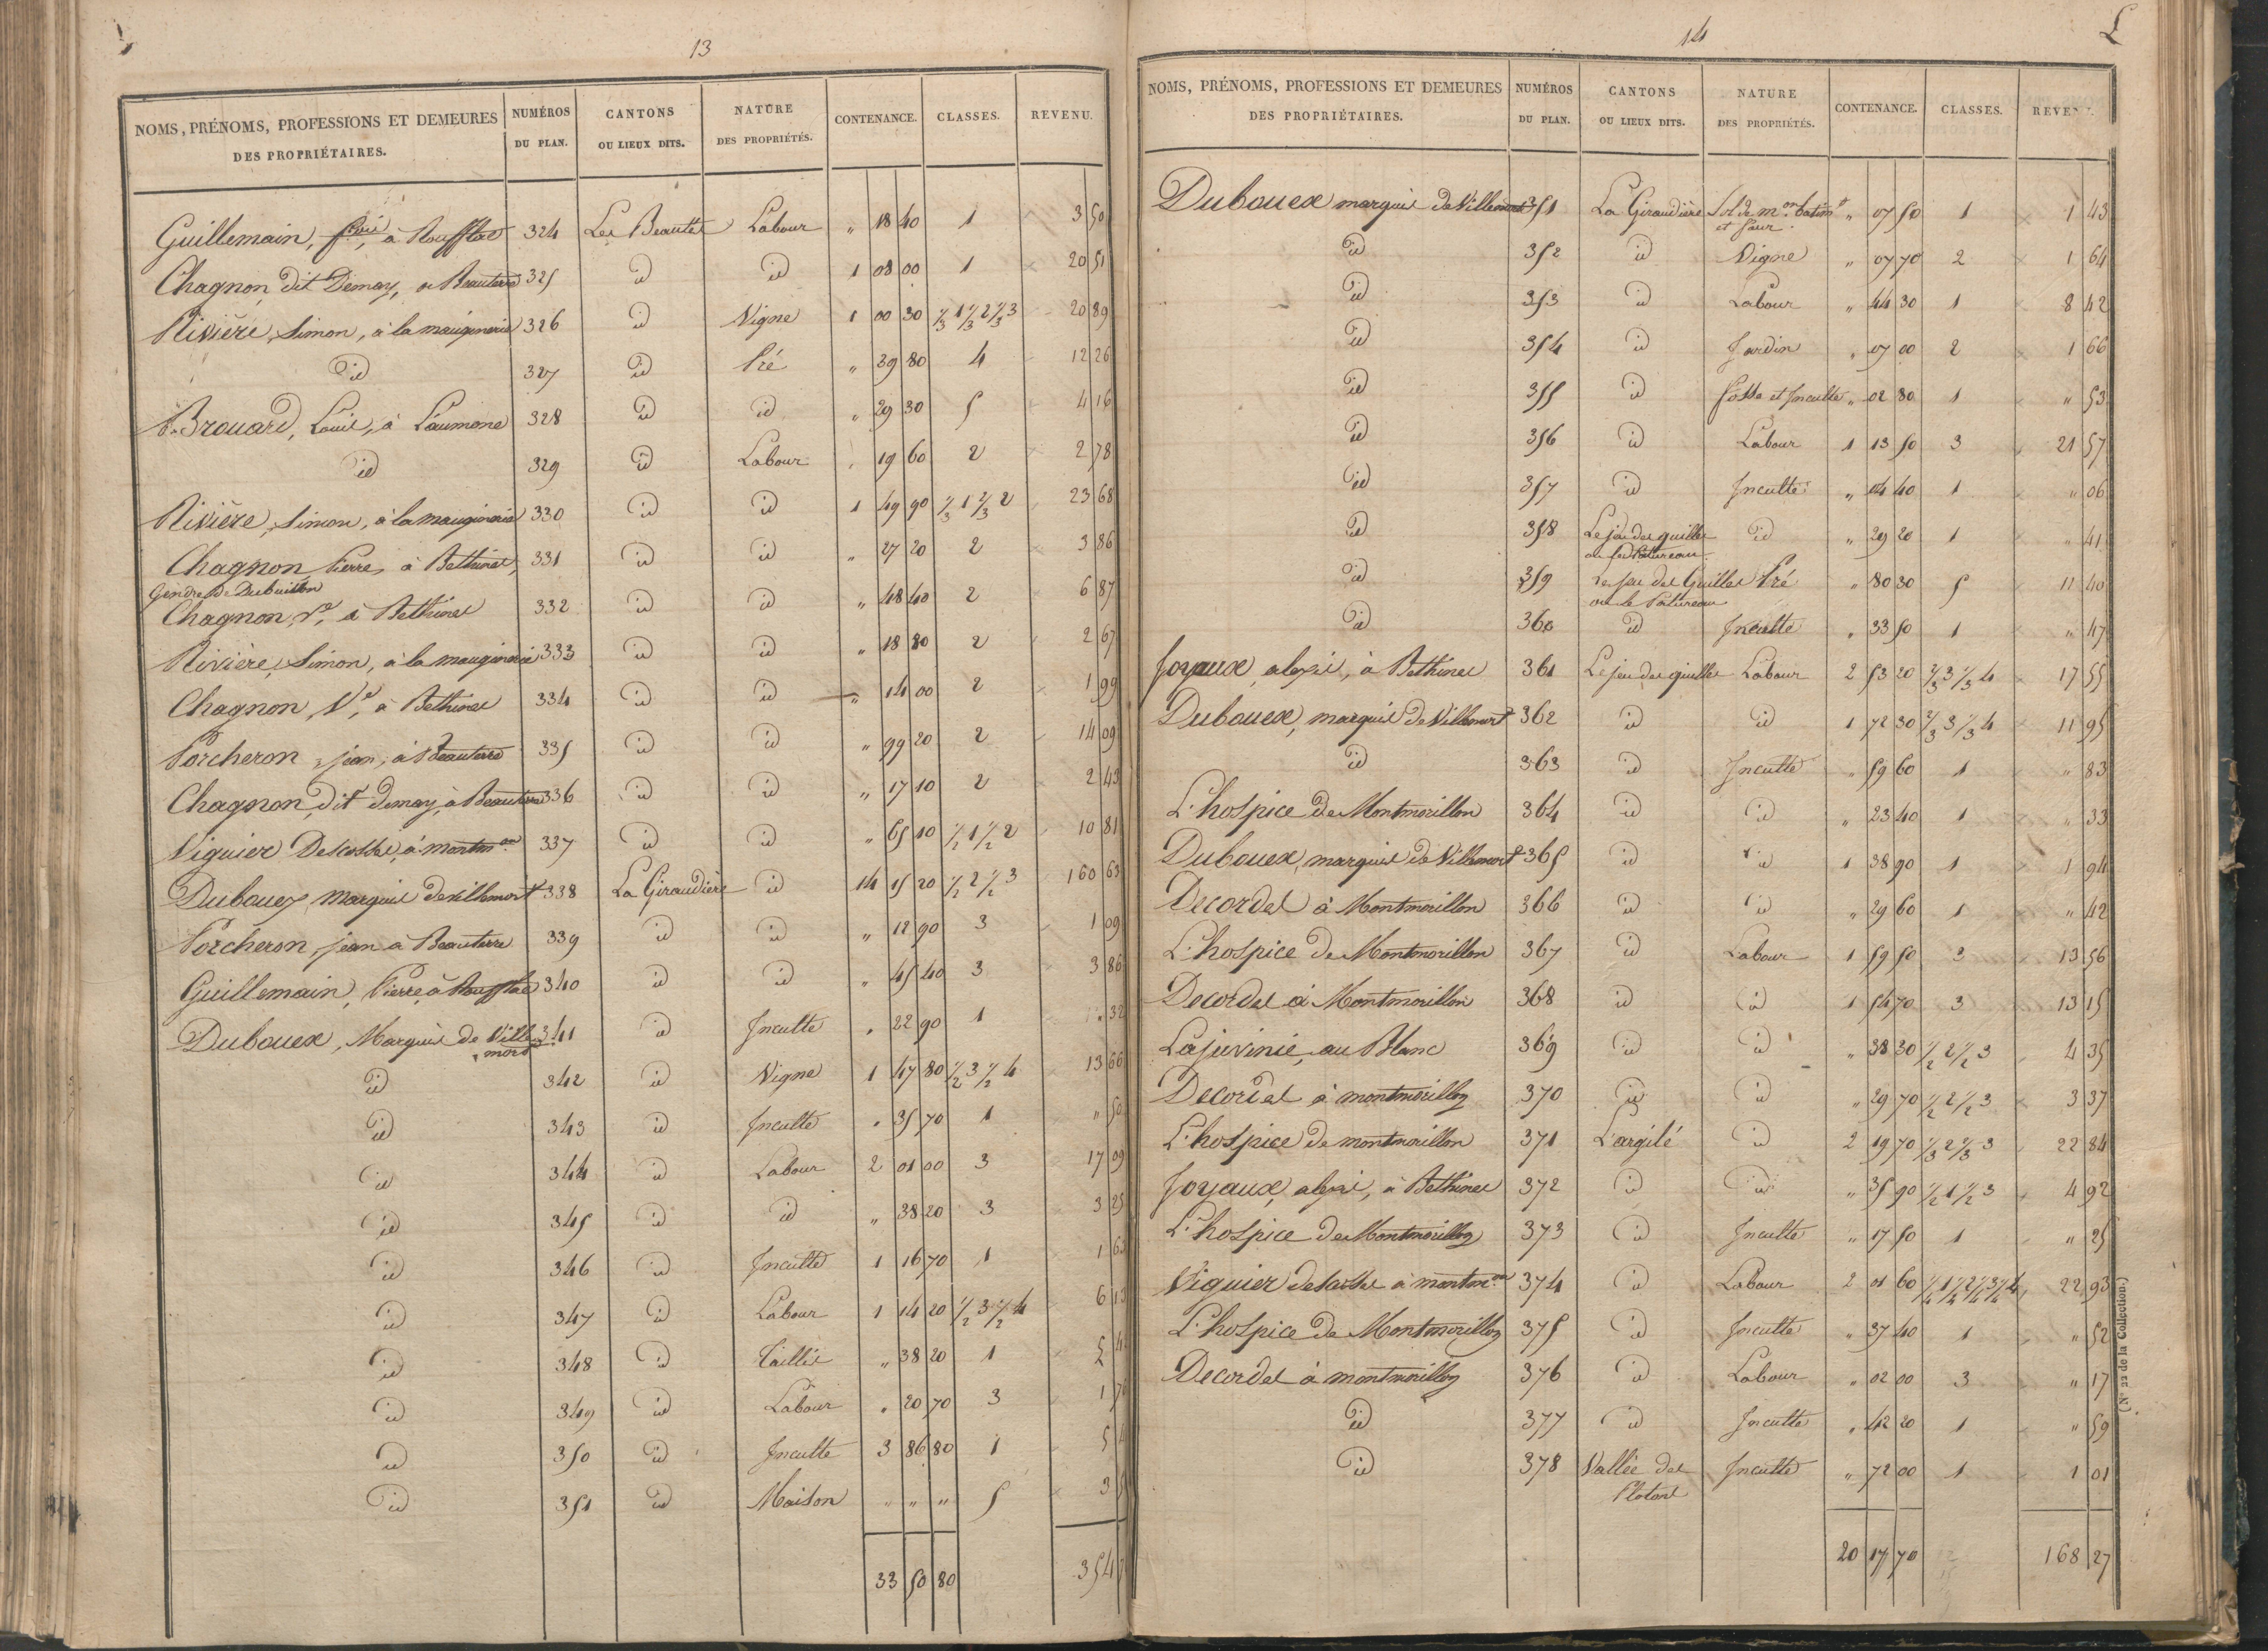 13
NOMS, PRÉNOMS, PROFESSIONS ET DEMEURES DES PROPRIÉTAIRES. NUMÉROS DU PLAN. CANTONS OU LIEUX DITS. NATURE DES PROPRIÉTÉS. CONTENANCE. CLASSES. REVENU.
Guillemain, à Roufflac 324 Les Beautés Labour " 18 40 1 3 50
Chagnon dit Demay, à Beauterre 325 id id 1 08 00 1 20 51
Rivière, Simon, à la mauginerie 326 id Vigne 1 00 30 1/3 1 1/3 2 1/3 3 20 89
id 327 id Pré " 39 80 4 12 26
Brouard, Louis, à Laumone 328 id id " 29 30 5 4 16
id 329 id Labour " 19 60 2 2 78
Rivière, Simon, à la mauginerie 330 id id 1 49 90 1/3 1 2/3 2 23 68
Chagnon Pierre, à Bethines, 331 id id " 27 20 2 3 86
Gendre de Dubuisson
Chagnon, Ve, à Bethines 332 id id " 48 40 2 6 87
Rivière, Simon, à la mauginerie 333 id id " 18 80 2 2 67
Chagnon, Ve, à Bethines 334 id id " 14 00 2 1 99
Porcheron, jean, à Beauterre 335 id id " 99 20 2 14 09
Chagnon, dit demay, à Beauterre 336 id id " 17 10 2 2 43
Viguier Descosse, à montm.on 337 id id " 65 10 1/2 1 1/2 2 10 81
Dubouex, marquis de villemort 338 La Giraudière id 14 15 20 1/2 2 1/2 3 160 63
Porcheron, jean à Beauterre 339 id id " 12 90 3 1 09
Guillemain, Pierre, à Roufflac 340 id id " 45 40 3 3 86
Dubouex, Marquis de Villemort 341 id Inculte " 22 90 1 " 32
id 342 id Vigne 1 47 80 1/2 3 1/2 4 13 66
id 343 id Inculte " 35 70 1 " 50
id 344 id Labour 2 01 00 3 17 09
id 345 id id " 38 20 3 3 25
id 346 id Inculte 1 16 70 1 1 63
id 347 id Labour 1 14 20 1/2 3 1/2 4 6 13
id 348 id Taillis " 38 20 1 5
id 349 id Labour " 20 70 3 1
id 350 id Inculte 3 86 80 1 5
id 351 id Maison " " " 5 3
33 50 80 354
14
NOMS, PRÉNOMS, PROFESSIONS ET DEMEURES DES PROPRIÉTAIRES. NUMÉROS DU PLAN. CANTONS OU LIEUX DITS. NATURE DES PROPRIÉTÉS. CONTENANCE. CLASSES. REVENU.
Dubouex marquis de Villemort 351 La Giraudière Sol de m.on batim.t et cour " 07 50 1 1 43
id 352 id Vigne " 07 70 2 1 64
id 353 id Labour " 44 30 1 8 42
id 354 id Jardin " 07 00 2 1 66
id 355 id fosse et Inculte " 02 80 1 " 53
id 356 id Labour 1 13 50 3 21 57
id 357 id Inculte " 04 40 1 " 06
id 358 Le jeu des quilles ou le Patureau id " 29 20 1 " 41
id 359 Le jeu des Quilles ou le Patureau Pré " 80 30 5 11 40
id 360 id Inculte " 33 50 1 " 47
Joyaux, alexis, à Bethines 361 Le jeu des quilles Labour 2 53 20 2/3 3 1/3 4 17 55
Dubouex, marquis de Villemort 362 id id 1 72 30 2/3 3 1/3 4 11 95
id 363 id Inculte " 59 60 1 " 83
L'hospice de Montmorillon 364 id id " 23 40 1 " 33
Dubouex, marquis de Villemort 365 id id 1 38 90 1 1 94
Decordes à Montmorillon 366 id id " 29 60 1 " 42
L'hospice de Montmorillon 367 id Labour 1 59 50 3 13 56
Decordes à Montmorillon 368 id id 1 54 70 3 13 15
Lajuvinie, au Blanc 369 id id " 38 30 1/2 2 1/2 3 4 35
Decordes à montmorillon 370 id id " 29 70 1/2 2 1/2 3 3 37
L'hospice de montmorillon 371 L'argilé id 2 19 70 1/3 2 2/3 3 22 84
Joyaux, alexis, à Bethines 372 id id " 35 90 1/2 1 1/2 3 4 92
L'hospice de Montmorillon 373 id Inculte " 17 50 1 " 25
Viguier descosse à montm.on 374 id Labour 2 01 60 1/4 1 1/4 2 1/4 3 1/4 4 22 93
L'hospice de Montmorillon 375 id Inculte " 37 40 1 " 52
Decordes à montmorillon 376 id Labour " 02 00 3 " 17
id 377 id Inculte " 42 20 1 " 59
id 378 Vallée des Plotons Inculte " 72 00 1 1 01
20 17 70 168 27
(N° 22 de la Collection.)